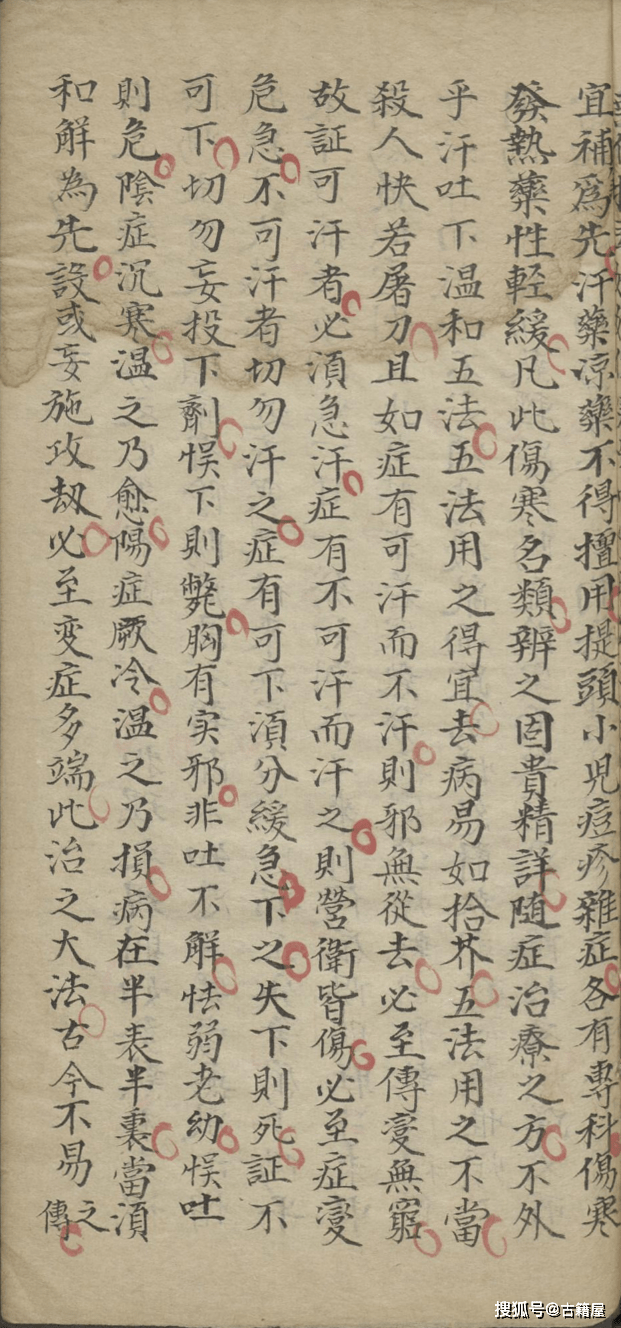 宜補爲先汗藥涼藥不得擅用提頭小児痘疹雜症各有專科傷寒
發熱藥性輕緩凡此傷寒名類辨之固貴精詳随症治療之方不外
乎汗吐下温和五法五法用之得宜去病易如拾芥五法用之不當
殺人快若屠刀且如症有可汗而不汗則邪無從去必至傳變無窮
故証可汗者必湏急汗症有不可汗而汗之則營衛皆傷必至症變
危急不可汗者切勿汗之症有可下湏分緩急下之失下則死証不
可下切勿妄投下劑悮下則斃胸有实邪非吐不解怯弱老幼悮吐
則危陰症沉寒温之乃愈陽症厥冷温之乃損病在半表半裏當湏
和解為先設或妄施攻刼必至变症多端此治之大法古今不易
之傳
搜狐号@古籍屋